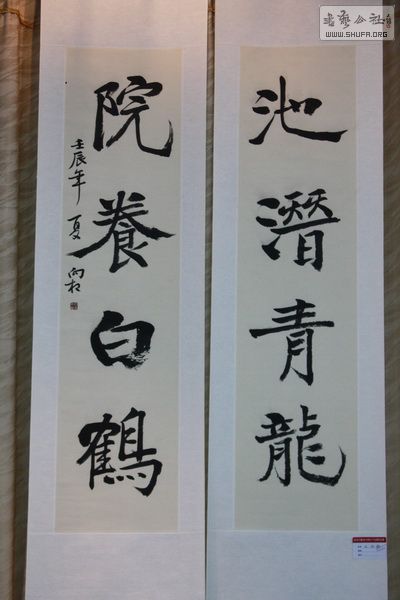 池潛青龍
院養白鶴
壬辰年夏向松
書藝公社
WWW.SHUFA.ORG